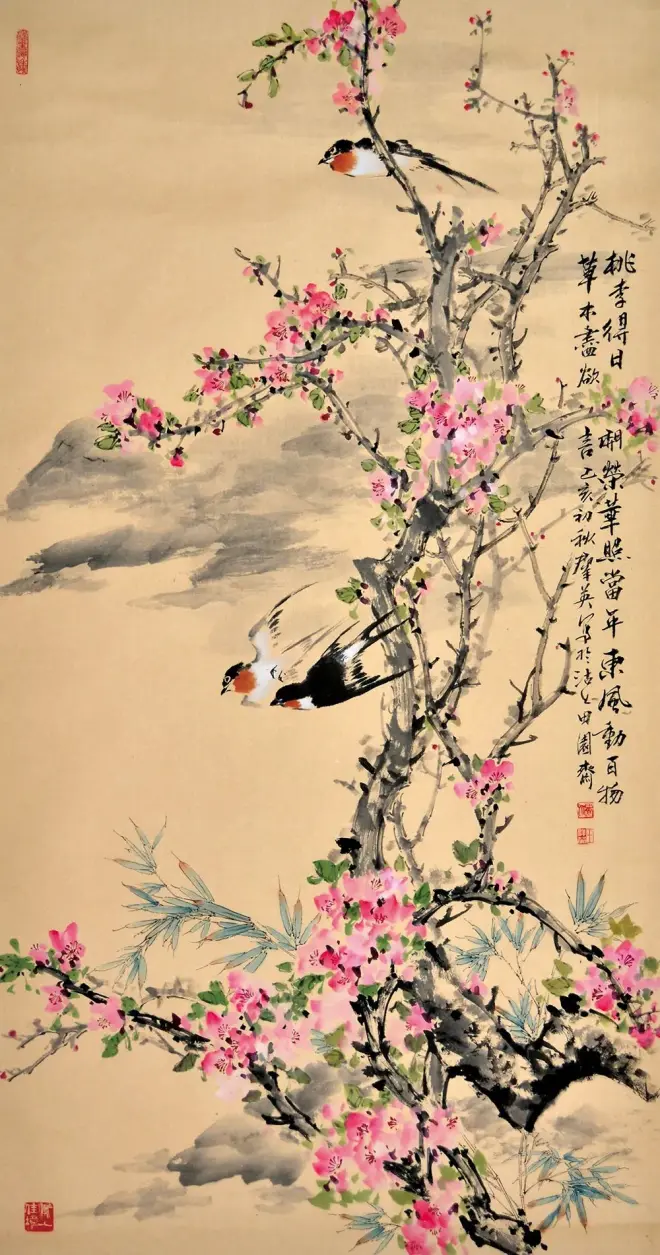 桃李得日開榮華照當年東風動百物
草木盡欲言己亥初秋羣英寫於沽上田園齋